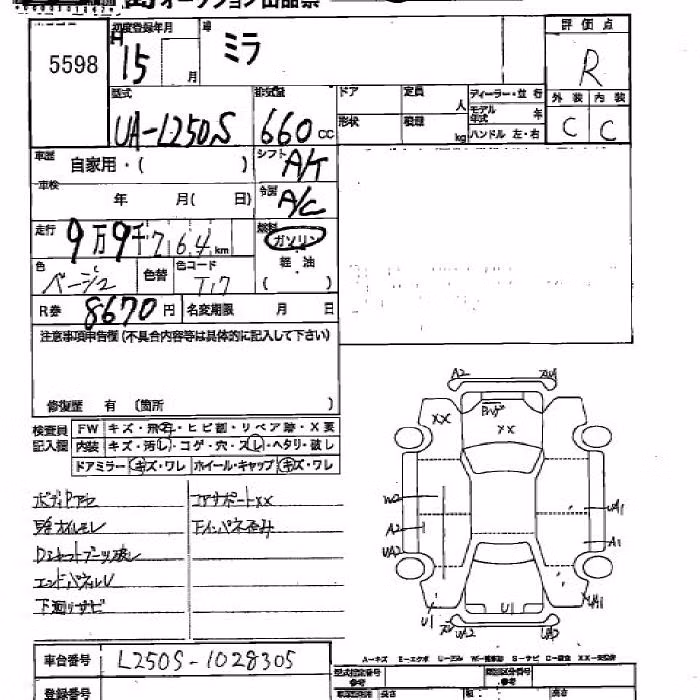 オークション出品票
5598
初度登録年月
車
評価点
H 15 月
ミラ
R
型式
排気量
ドア
定員
人
ディーラー・並行
外装
内装
UA-L250S
660 cc
形状
積載
kg
モデル年式
年
ハンドル 左・右
C
C
車歴
自家用・( )
シフト
A/T
車検
年 月( 日)
冷房
A/C
走行
9万9千764 km
燃料
ガソリン
軽油
( )
色
ベージュ
色替
色コード
T17
R券
8670円
名変期限 月 日
注意事項申告欄(不具合内容等は具体的に記入して下さい)
修復歴 有 (箇所 )
検査員
記入欄
FW
キズ・飛石・ヒビ割・リペア跡・X要
内装
キズ・汚レ・コゲ・穴・スレ・ヘタリ・破レ
ドアミラー
キズ・ワレ
ホイール・キャップ
キズ・ワレ
コアサポートXX
エンドパネルU
下廻りサビ
A2
XX
XX
W2
A2
UA2
UA1
A1
U1
U1
UA1
UA2
車台番号
L250S-1028305
A-キズ E-エクボ U-凹み W-補修跡 S-サビ C-腐食 XX-交換済
登録番号
型式指定番号
参考
類別区分番号
参考
長さ
幅
高さ